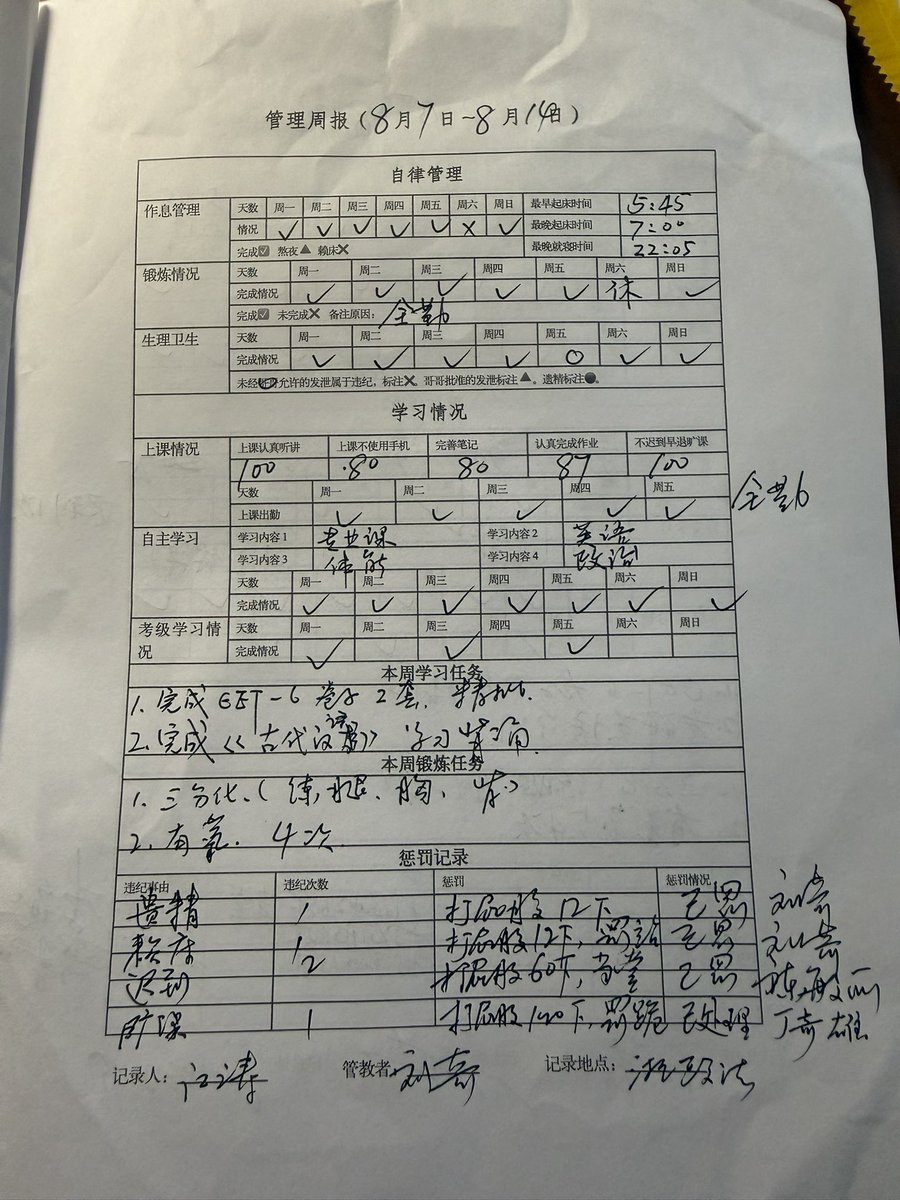 管理周报（8月7日~8月14日）
自律管理
作息管理 天数 周一 周二 周三 周四 周五 周六 周日 最早起床时间 5:45
情况 ✓ ✓ ✓ ✓ ✓ × ✓ 最晚起床时间 7:00
完成☑ 熬夜▲ 赖床✕ 最晚就寝时间 22:05
锻炼情况 天数 周一 周二 周三 周四 周五 周六 周日
完成情况 ✓ ✓ ✓ ✓ ✓ 休 ✓
完成☑ 未完成✕ 备注原因： 全勤
生理卫生 天数 周一 周二 周三 周四 周五 周六 周日
完成情况 ✓ ✓ ✓ ✓ ○ ✓ ✓
未经哥哥允许的发泄属于违纪，标注✕。哥哥批准的发泄标注▲。遗精标注●。
学习情况
上课情况 上课认真听讲 上课不使用手机 完善笔记 认真完成作业 不迟到早退旷课
100 80 80 87 100
天数 周一 周二 周三 周四 周五 全勤
上课出勤 ✓ ✓ ✓ ✓ ✓
自主学习 学习内容1 专业课 学习内容2 英语
学习内容3 体能 学习内容4 政治
天数 周一 周二 周三 周四 周五 周六 周日
完成情况 ✓ ✓ ✓ ✓ ✓ ✓ ✓
考级学习情况 天数 周一 周二 周三 周四 周五 周六 周日
完成情况 ✓ ✓ ✓
本周学习任务
1. 完成 CET-6 卷子2套、
2. 完成《古代汉语》学习背诵
本周锻炼任务
1. 三分化、（练腿、胸、背）
2. 有氧、4次
惩罚记录
违纪事由 违纪次数 惩罚 惩罚情况
遗精 1 打屁股12下 已罚 刘奇
赖床 1 打屁股12下，罚站 已罚 刘奇
迟到 2 打屁股60下，当堂 已罚
旷课 1 打屁股120下，罚跪 已处理 丁奇雄
记录人： 江涛 管教者 刘奇 记录地点：